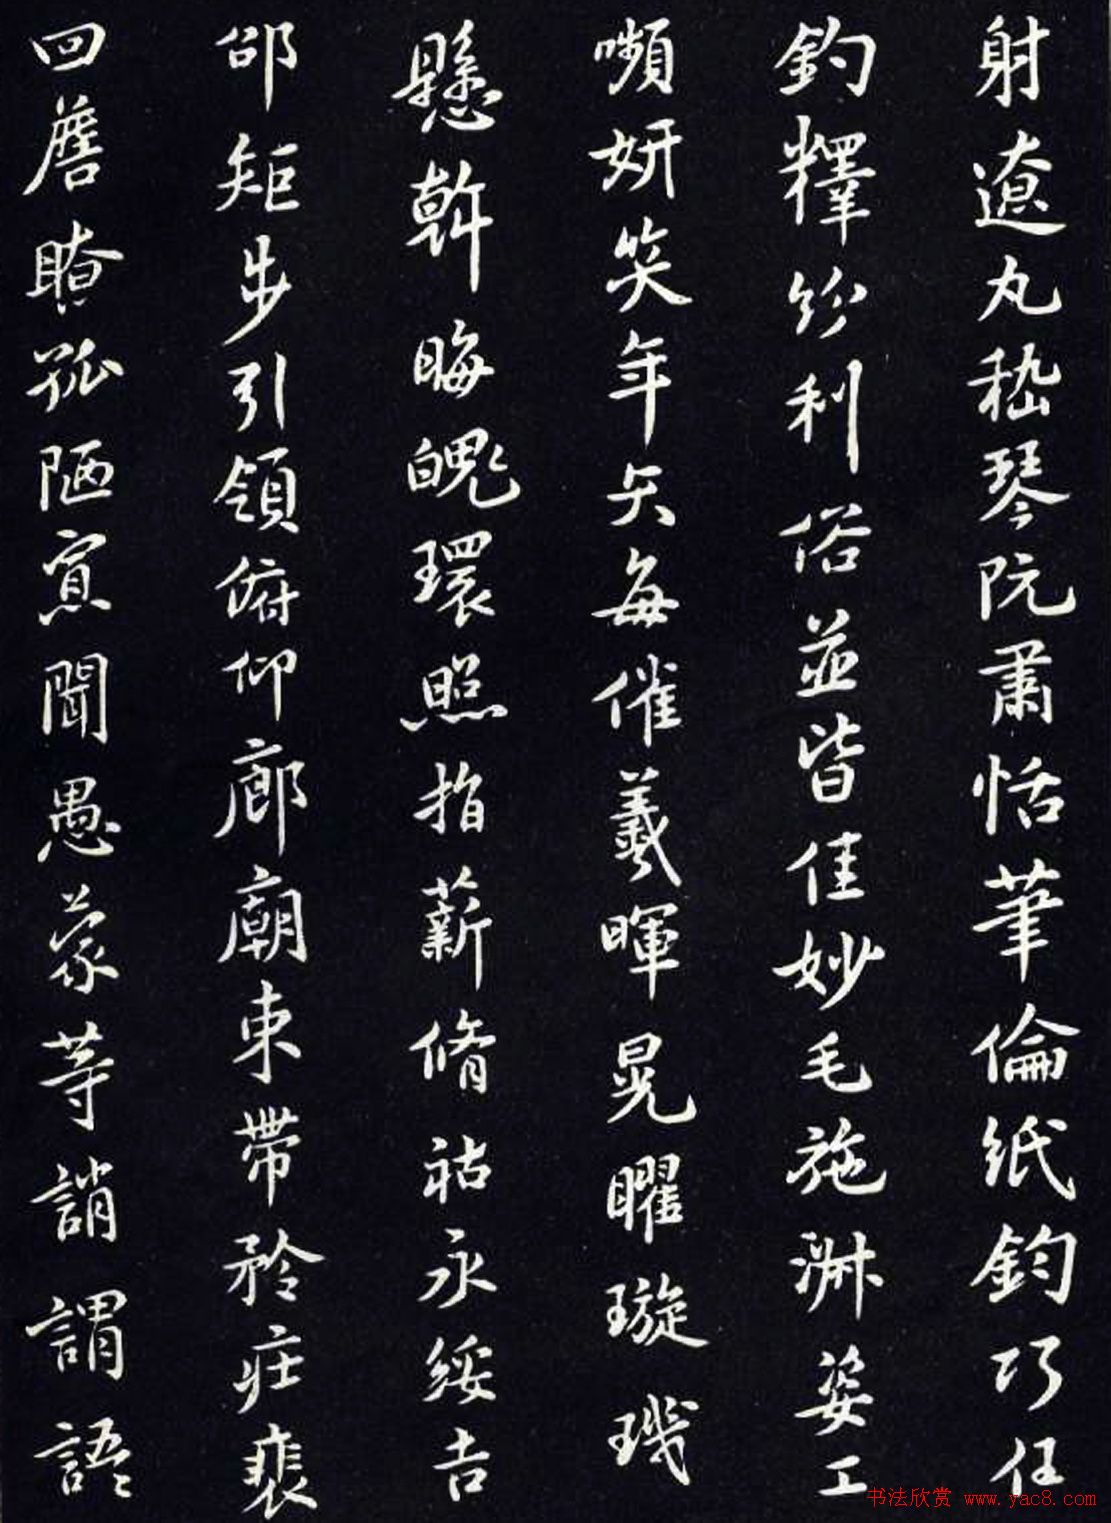 射遼丸嵇琴阮肅恬筆倫紙鈞巧任
釣釋紛利俗並皆佳妙毛施淑姿工
嚬妍笑年矢每催羲暉晃曜璇璣
懸斡晦魄環照指薪脩祜永綏吉
邵矩步引領俯仰廊廟束帶矜莊裴
回瞻眺孤陋寡聞愚蒙等誚謂語
书法欣赏 www.yac8.com